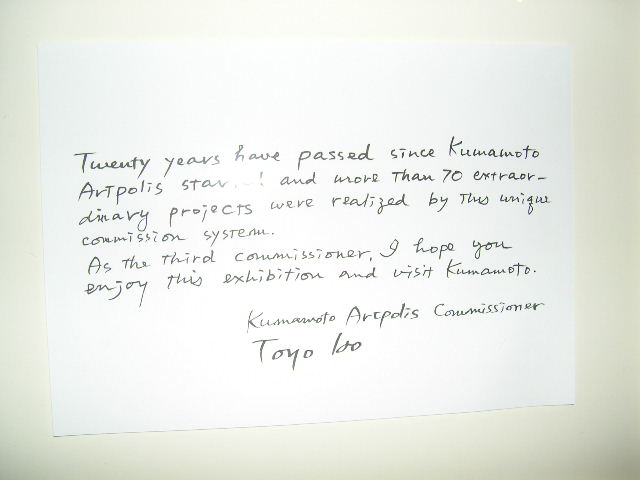 Twenty years have passed since Kumamoto
Artpolis and more than 70 extraor-
dinary projects were realized by this unique
commission system.
As the third commissioner, I hope you
enjoy this exhibition and visit Kumamoto.
Kumamoto Artpolis Commissioner
Toyo Ito